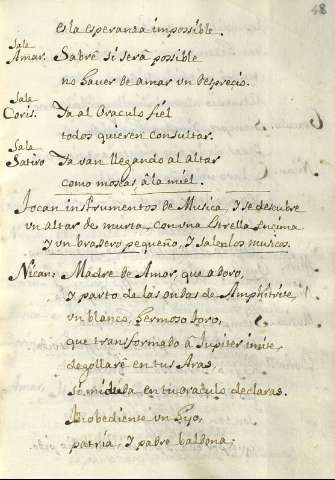 48
es la esperanza impossible.
Sale
Amar. Sabrè si serà possible
no haver de amar un desprecio.
Sale
Coris. Ya al Oraculo fiel
todos quieren consultar.
Sale
Satiro Ya van llegando al altar
como moscas, â la miel.
Tocan instrumentos de Musica, y se descubre
un altar de murta, con una Estrella encima
y un brasero pequeño, y salen los musicos.
Nican: Madre de Amor, que adoro,
y parto de las ondas de Amphitrite,
un blanco, hermoso toro,
que transformado â Jupiter imite,
degollarè en tus Aras,
si mi duda en tu oraculo declaras.
Mi obediente un hijo,
patria, y padre baldona;